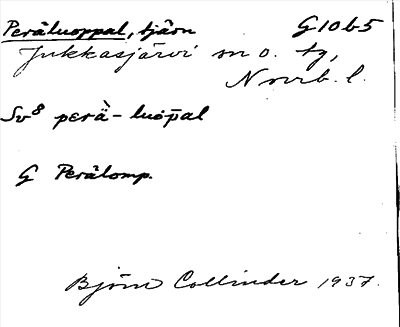 Peräluoppal, tjärn G10b5
Jukkasjärvi sn o. tg,
Norrb. l.
Sv8 perä̀-luo͔p̄al
G Perälomp.
Björn Collinder 1937.